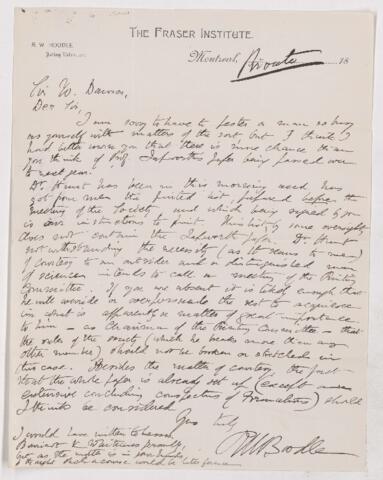 THE FRASER INSTITUTE.
R. W. BOODLE,
Acting Librarian.
Montreal, Private 18
Sir W. Dawson,
Dear Sir,
I am sorry to have to pester a man so busy
as yourself with matters of the sort but I think I
had better warn you that there is some chance
you think of Prof. Lapworth's paper being passed over
to next year.
Dr. Hunt has been in this morning and has
got from me the printed list prepared before the
meeting of the Society and which being signed by you
is our instructions to print. This list by some oversight
does not contain the Lapworth paper. Dr. Hunt
notwithstanding the necessity (as it seems to me)
of courtesy to an outsider and a distinguished man
of science intends to call a meeting of the Printing
Committee. If you are absent it is likely enough that
he will override or overpersuade the rest to acquiesce
in what is apparently a matter of great importance
to him — as Chairman of the Printing Committee — that
the rules of the society (which he breaks more than any
other member) should not be broken or stretched in
this case. Besides the matter of courtesy, the fact
that the whole paper is already set up (except
extensive concluding conspectus of Formations) should
I think be considered
Yours truly
R W Boodle
I would have written to Messrs
Dawson & Whiteaves
but as the matter is in your hands,
I thought such a course would be